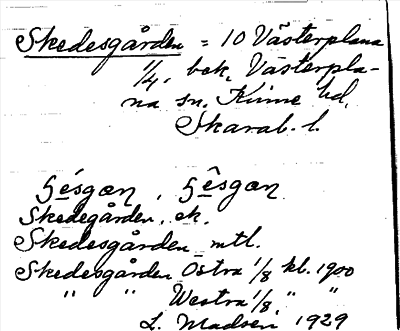 Skedesgården = 10 Västerplana
1/4, bek. Västerpla-
na sn. Kinne hd.
Skarab. l.
Skedegården, ek.
Skedesgården mtl.
Skedesgården Östra 1/8 kl. 1900
" " Westra 1/8, " "
L. Madsén 1929